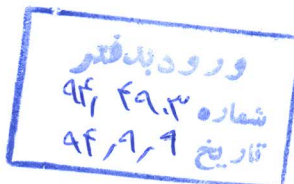 ورود بدفتر
شماره ۹۴٫۴۹۰۳
تاریخ ۹۴٫۹٫۹